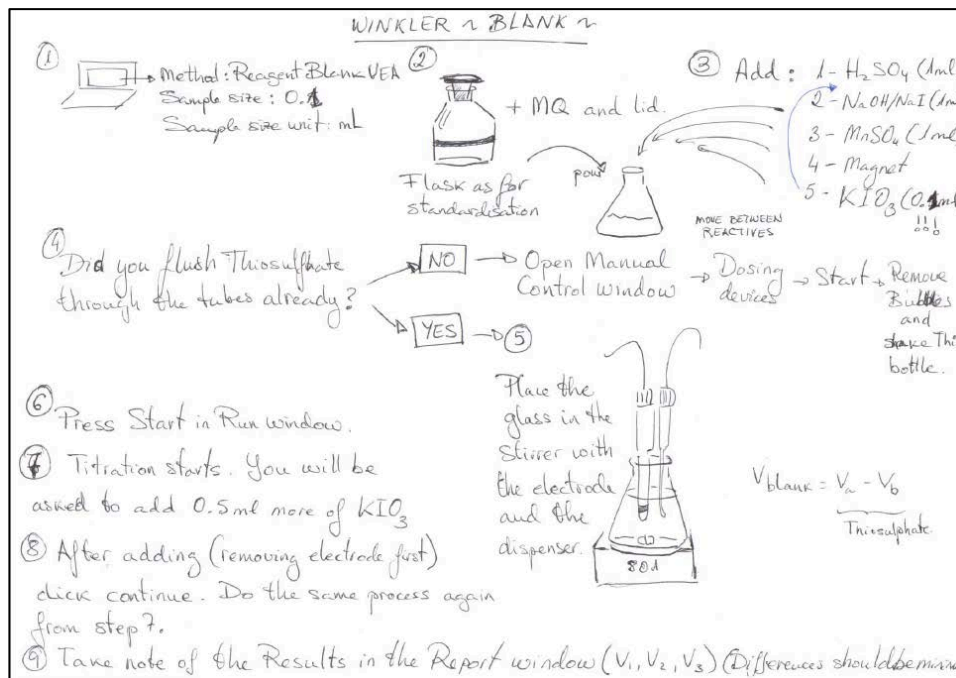 WINKLER ~ BLANK ~
①
→ Method: Reagent Blank VEA
Sample size: 0.1
Sample size unit: mL
②
+ MQ and lid.
Flask as for
standardisation
pour
③ Add: 1- H₂SO₄ (1ml
2- NaOH/NaI (1m
3- MnSO₄ (1ml
4- Magnet
5- KIO₃ (0.1ml
!!!
MOVE BETWEEN
REACTIVES
④
Did you flush Thiosulfhate
through the tubes already?
NO → Open Manual
Control window
→ Dosing
devices
→ Start
→ Remove
and
shake Thi
bottle.
YES → ⑤
Place the
glass in the
stirrer with
the electrode
and the
dispenser.
801
⑥ Press Start in Run window.
⑦ Titration starts. You will be
asked to add 0.5ml more of KIO₃
⑧ After adding (removing electrode first)
click continue. Do the same process again
from step 7.
V blank = Va - Vb
Thiosulphate
⑨ Take note of the Results in the Report window (V₁, V₂, V₃) (Differences should be